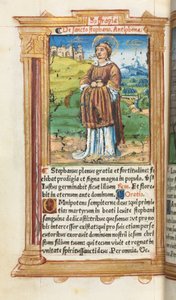 De sancto stephano. Antiphona.
Stephanus plenus gratia et fortitudine: fa
ciebat prodigia et signa magna in populo. ℣
Iustus germinabit sicut lilium. Et flore
bit in eternum ante dominum. Oratio.
Omnipotens sempiterne deus qui primi
tias martyrum in beati levite stephani
sanguine dedicasti: tribue quesumus: ut pro no
bis intercessor existat: qui pro suis etiam perse
cutoribus exoravit dominum nostrum iesum chri
stum filium tuum: qui tecum vivit et regnat in
unitate spiritus sancti deus. Per omnia. &c.